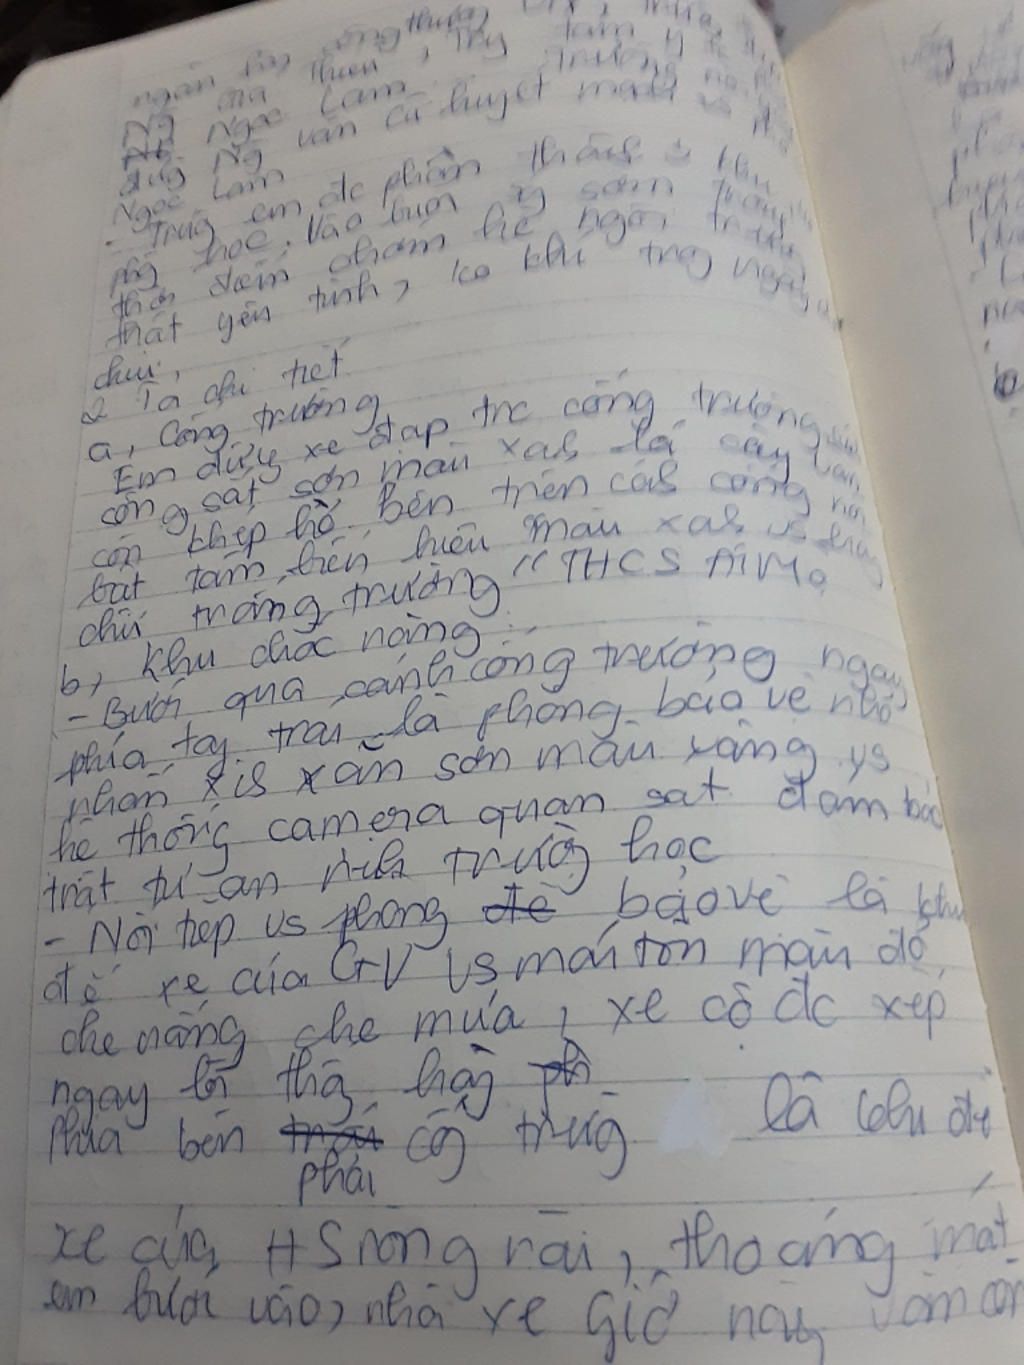 ngân hàng công thương
Ng Gia Thiều, Thy tâm y tế
Ng Ngọc Lâm. Trường
đứg Ng văn Cừ huyết mạch
Ngọc Lâm
- Trườg em đc phân thàh
pòg học. Vào buổi ság sớm
thời điểm chớm hè ngôi trườg
thật yên tĩnh, ko khí trog
chịu,
2 Tả chi tiết
a, Cổng trường
Em dừng xe đạp trc cổng trường
cổng sắt sơn màu xah lá cây vẫn
còn khép hờ. Bên trên cáh cổng nổi
bật tấm biển hiệu màu xah vs hàng
chữ trắng trường "THCS Ái Mộ
b, Khu chức năng:
- Bước qua cánh cổng trường ngay
phía tay trái là phòng bảo vệ nhỏ
nhắn xih xắn sơn màu vàng vs
hệ thống camera quan sát đảm bảo
trật tự an nih trườg học
- Nối tiếp vs phòng để bảo vệ là khu
để xe của GV vs mái tôn màu đỏ
che nắng che mưa, xe cộ đc xếp
ngay lối thg hàg ph
Phía bên trái cổg trườg là khu để
phải
xe của HS rộng rãi, thoáng mát
em bước vào, nhà xe giờ này vẫn còn